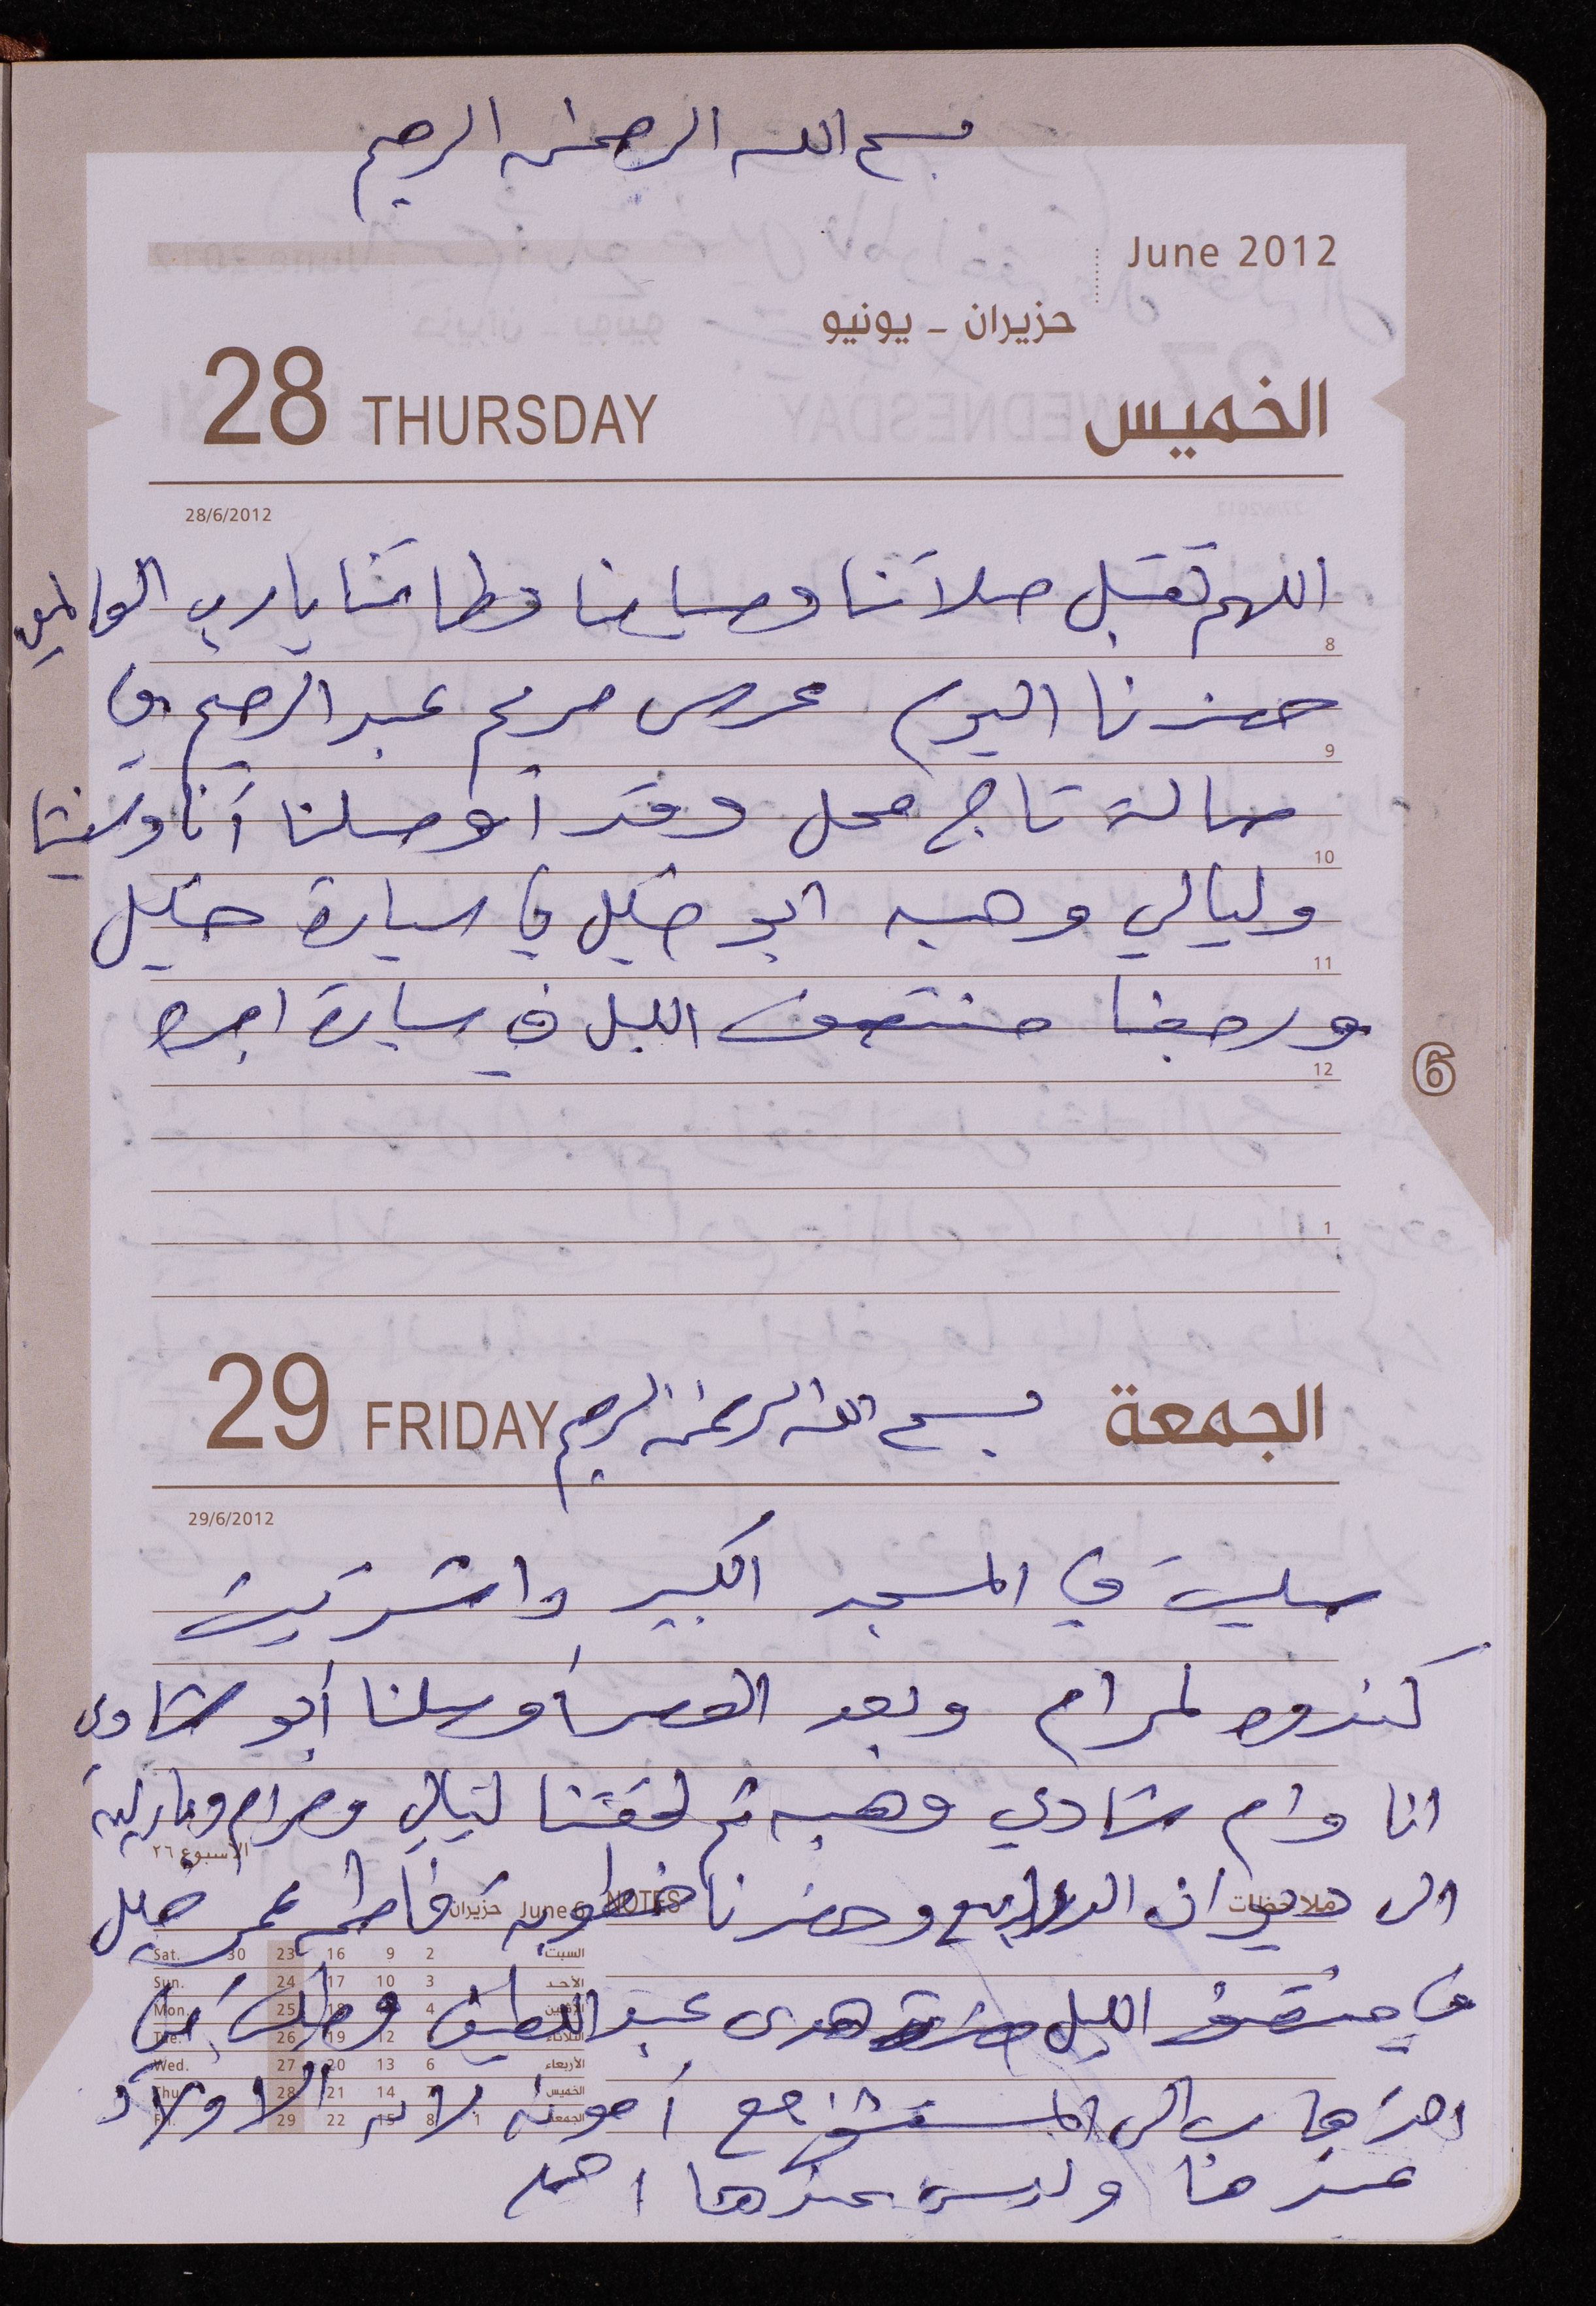 بسم الله الرحمن الرحيم
June 2012
حزيران - يونيو
28 THURSDAY الخميس
28/6/2012
اللهم تقبل صلاتنا وصيامنا وطاعتنا يارب العالمين
8
حضرنا اليوم عرس مريم عبد الرحيم في
9
صالة تاج محل وقد أوصلنا أنا
10
وليالي وهبه ابو خليل في سيارة خليل
11
ورجعنا منتصف الليل في سيارة اجره
12
6
1
29 FRIDAY بسم الله الرحمن الرحيم الجمعة
29/6/2012
صليت في المسجد الكبير واشتريت
كندره لمرام وبعد العصر أوصلنا أبو شادي
انا وام شادي وهبه ثم لحقتنا ليالي ومرام
الأسبوع ٢٦
الى ديوان وحضرنا خطوبة فاطمه عمر خليل
ملاحظات NOTES June 6 حزيران
السبت 2 9 16 23 30 Sat.
الأحد 3 10 17 24 Sun.
في منتصف الليل هدى عبد اللطيف
الاثنين 4 18 25 Mon.
الثلاثاء 12 19 26 Tue.
الأربعاء 6 13 20 27 Wed.
الى المستشفى مع أمونه لانه الاولاد
الخميس 14 21 28 Thu.
الجمعة 1 8 15 22 29 Fri.
عندنا وليس عندها احمد